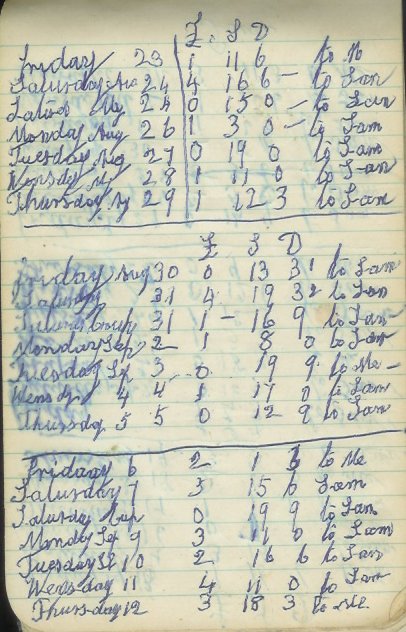 £ S D
Friday 23 1 11 6 to Me
Saturday Aug 24 4 16 6 – to Sam
24 0 15 0 – to Sam
Monday Aug 26 1 3 0 – to Sam
Tuesday Aug 27 0 19 0 to Sam
28 1 11 0 to Sam
Thursday Ag 29 1 12 3 to Sam
£ S D
Friday Aug 30 0 13 3 to Sam
Saturday 31 4 19 3 to Sam
31 1 – 16 9 to Sam
Monday Sep 2 1 8 0 to Sam
Tuesday Sep 3 0 19 9 to Me –
4 1 0 to Sam
Thursday 5 0 12 9 to Sam
Friday 6 2 1 to Me
Saturday 7 3 15 6 Sam
Saturday 0 19 9 to Sam
Monday Sep 9 3 11 0 to Sam
Tuesday 10 2 16 6 to Sam
Wensday 11 4 11 0 to Sam
Thursday 12 3 18 3 to Me